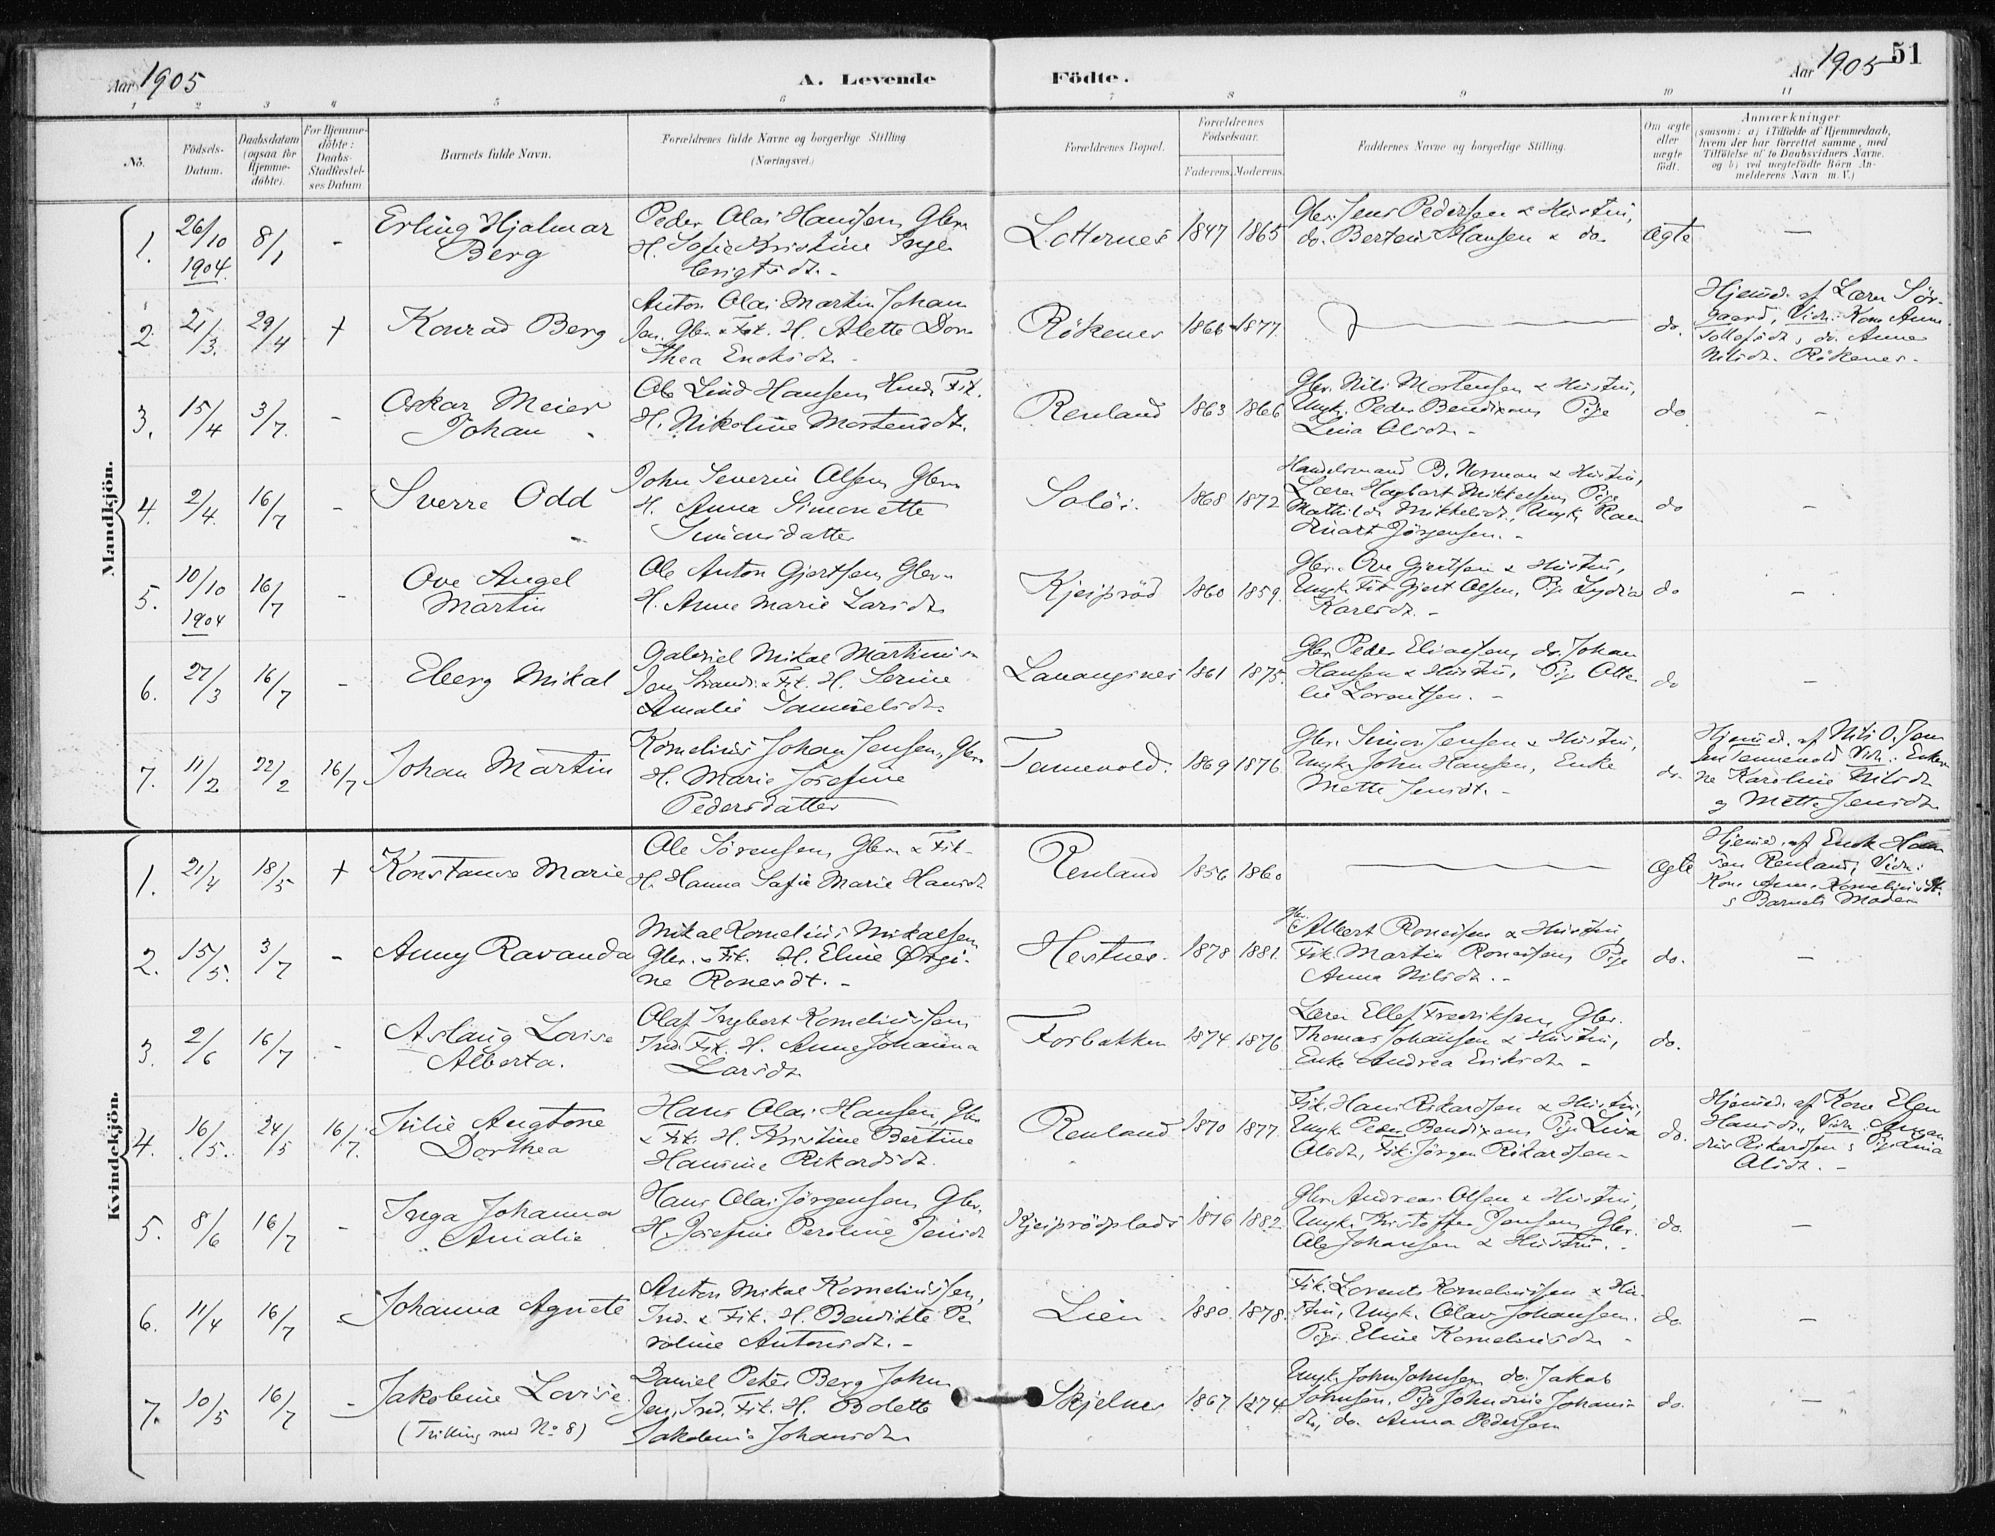 Aar 1905
A. Levende
Födte.
Aar 1905
51
1 2 3 4 5 6 7 8 9 10 11
No.
Födsels-
Datum.
Daabsdatum
(ogsaa for
Hjemme-
döbte).
For Hjemme-
döbte:
Daabs-
Stadfæstel-
ses Datum
Barnets fulde Navn.
Forældrenes fulde Navne og borgerlige Stilling
(Næringsvei.)
Forældrenes Bopæl.
Forældrenes
Födselsaar.
Faderens. Moderens.
Faddernes Navne og borgerlige Stilling.
Om ægte
eller
uægte
födt.
Anmærkninger
(saasom: a) i Tilfælde af Hjemmedaab,
hvem der har forrettet samme, med
Tilföielse af to Daabsvidners Navne.
og b) ved uægtefödte Börn An-
melderens Navn m. V.)
Mandkjön.
1.
26/10
1904.
8/1
-
Erling Hjalmar
Berg
Peder Olai Hanssen, Gbr.
H. Sofie Kristine Inge
brigtsdt. -
Lotternes
1847
1865
Gbr. Jens Pedersen & Hustru,
do. Berteus Hansen & do.
Ægte
—
2.
21/3.
29/4
+
Konrad Berg
Anton Olai Martin Johan
sen, Gbr. & Fisk. H. Alette Doro
thea Enoksdt. -
Rökenes
1866
1877.
do.
Hjemmed. af Lærer Sör-
gaard, Vidn. Kone Anne
Tollefsdt, do. Anne
Nilsdt. Rökenes.
3.
15/4
3/7.
-
Oskar Meier
Johan
Ole Lind Hansen, Fisk.
H. Nikoline Mortensdt.
Renland
1863
1866
Gbr. Nils Mortensen & Hustru,
Ungk. Peder Bendixen, Pige
Lina Olsdt. -
do
-
4.
2/4.
16/7
-
Sverre Odd
John Severin Olsen Gbr.
H. Anna Simonette
Simonsdatter
Salöi.
1868
1872
Handelsmand B. Norman & Hustru,
Lærer Hagbart Mikkelsen, Pige
Mathilde Mikkelsdt, Ungk.
Jörgensen. -
do
-
5.
10/10
1904
16/7
-
Ove Angel
Martin
Ole Anton Gjertsen, Gbr.
H. Anne Marie Larsdt.
Kjeiprød
1860
1859.
Gbr. Ove Gjertsen & Hustru,
Ungk. Fisk. Gjert Olsen, Pige Lydia
Karlsdt. -
do
-
6.
27/3
16/7
-
Eberg Mikal
Gabriel Mikal Martinus
sen, Strands. & Fisk. H. Serine
Amalie Samuelsdt.
Lavangsnes
1861
1875.
Gbr. Peder Eliassen, do. Johan
Hansen & Hustru, Pige Otte
lie Lorentsen. -
do
—
7.
11/2
22/2
16/7
Johan Martin
Kornelius Johan Jensen, Gbr.
H. Marie Josefine
Pedersdatter
Tennevold.
1869
1876
Gbr. Simon Jensen & Hustru,
Ungk. John Hansen, Enke
Mette Jensdt. -
do.
Hjemmed. af Nils O. Jen
sen Tennevold Vidn. Enker
ne Karoline Nilsdt.
og Mette Jensdt.
Kvindekjön.
1.
21/4
18/5
+
Konstanse Marie
Ole Sörensen, Gbr. & Fisk.
H. Hanna Sofie Marie Hansdt
Renland
1856
1860
Ægte
Hjemmed. af Enok Han
sen Renland, Vidn:
Kone Anne Korneliusdt.
& Barnets Moder
2.
15/5.
3/7
-
Anny Ravanda
Mikal Kornelius Mikalsen
Gbr. & Fisk. H. Eline Örgi-
ne Ronesdt. -
Hestnes.
1878
1881.
Gbr. Albert Ronessen & Hustru,
Fisk. Martin Ronessen, Pige
Anna Nilsdt. -
do.
—
3.
2/6
16/7
-
Aslaug Lovise
Alberta.
Olaf Ingbert Korneliussen
Ind. Fisk. H. Anne Johanna
Larsdt
Forbakken
1874
1876
Lærer Ellef Fredriksen, Gbr.
Thomas Johansen & Hustru,
Enke Andrea Eriksdt. -
do.
4.
16/5.
24/5
16/7.
Julie Angtone
Dorthea
Hans Olai Hansen, Gbr.
& Fisk. H. Kristine Bertine
Hansine Rikardsdt.
Renland
1870
1877.
Fisk. Hans Rikardsen & Hustru,
Ungk. Peder Bendixen, Pige Lina
Olsdt, Fisk. Jörgen Rikardsen -
do.
Hjemmed. af Kone Elen
Hansdt, Vidn.
Rikardsen & Pige Lina
Olsdt. -
5.
8/6
16/7
-
Inga Johanna
Amalie
Hans Olai Jörgensen, Gbr.
H. Josefine Peroline Jensdt
Kjeiprödplads
1876
1882.
Gbr. Andreas Olsen & Hustru,
Ungk. Kristoffer Jensen, Gbr.
Ole Johansen & Hustru. -
do.
—
6.
11/4
16/7
-
Johanna Agnete
Anton Mikal Korneliussen,
Ind. & Fisk. H. Bendikte Pe
roline Antonsdt. -
Lien.
1880
1878.
Fisk. Lorents Korneliussen & Hu-
stru, Ungk. Olav Johansen.
Pige Eline Korneliusdt -
do
—
7.
10/5
16/7
-
Jakobine Lovise
(Trilling med No 8)
Daniel Peter Berg John
sen, Ind. Fisk. H. Bolette
Jakobine Johansdt.
Skjelnes
1867
1874
Ungk. John Johnsen, do. Jakob
Johnsen, Pige Johndine Johans
dt, do. Anna Pedersen
do.
—